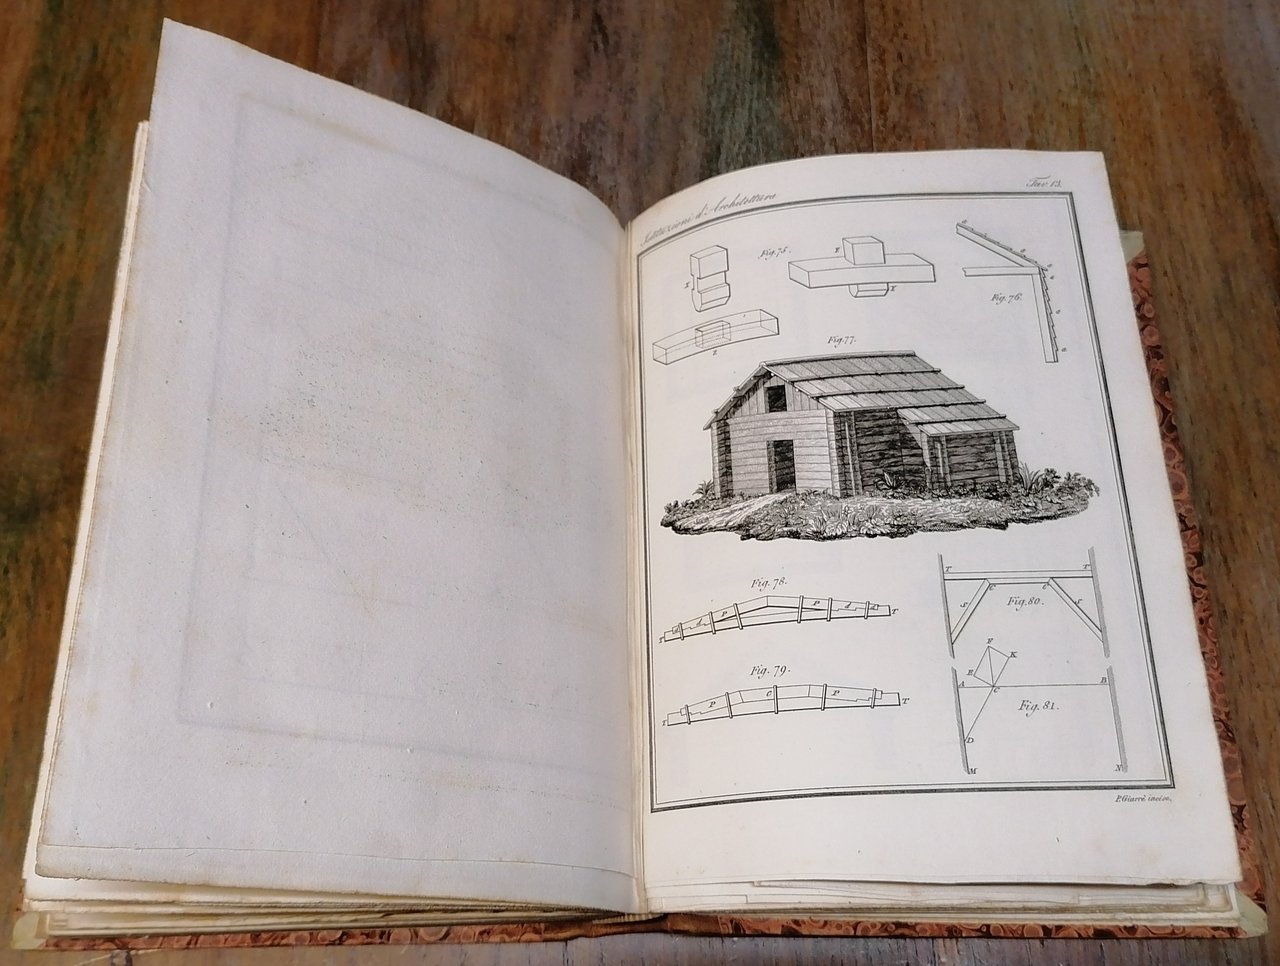 Istituzioni d'Architettura
Tav. 13.
Fig. 75.
X
Y
Y
Z
Fig. 76.
o
o
o
o
o
o
o
Fig. 77.
Fig. 78.
T d d P P d d T
Fig. 79.
T P C P T
T T
C C
S S
Fig. 80.
F
K
E
A C B
Fig. 81.
D
M N
P. Giarrè incise.